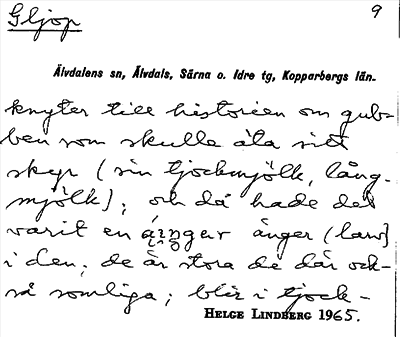 Gljop
9
Älvdalens sn, Älvdals, Särna o. Idre tg, Kopparbergs län.
knyter till historien om gub-
ben som skulle äta sitt
skyr (sin tjockmjölk, lång-
mjölk); och då hade det
varit en ånger (larv)
i den; de är stora de där ock-
så somliga; blir i tjock-
HELGE LINDBERG 1965.